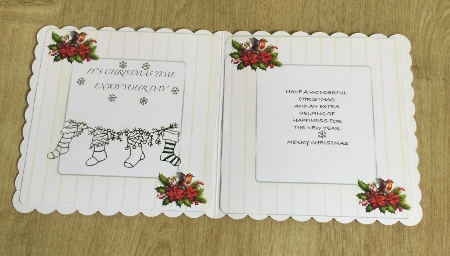 IT'S CHRISTMAS TIME
ENJOY YOUR DAY
HAVE A WONDERFUL
CHRISTMAS
AND AN EXTRA
HELPING OF
HAPPINESS FOR
THE NEW YEAR
MERRY CHRISTMAS